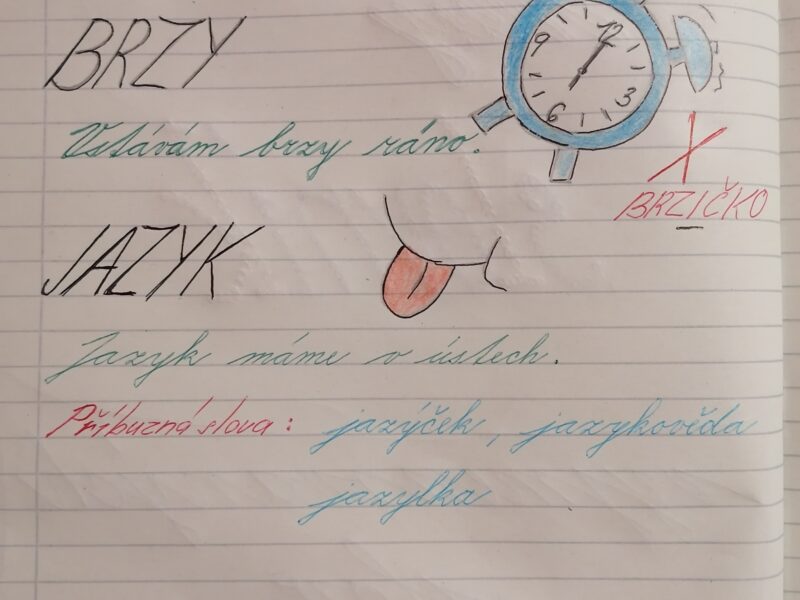 BRZY
12
9
3
6
Vstávám brzy ráno.
X
BRZIČKO
JAZYK
Jazyk máme v ústech.
Příbuzná slova: jazýček, jazykověda
jazylka